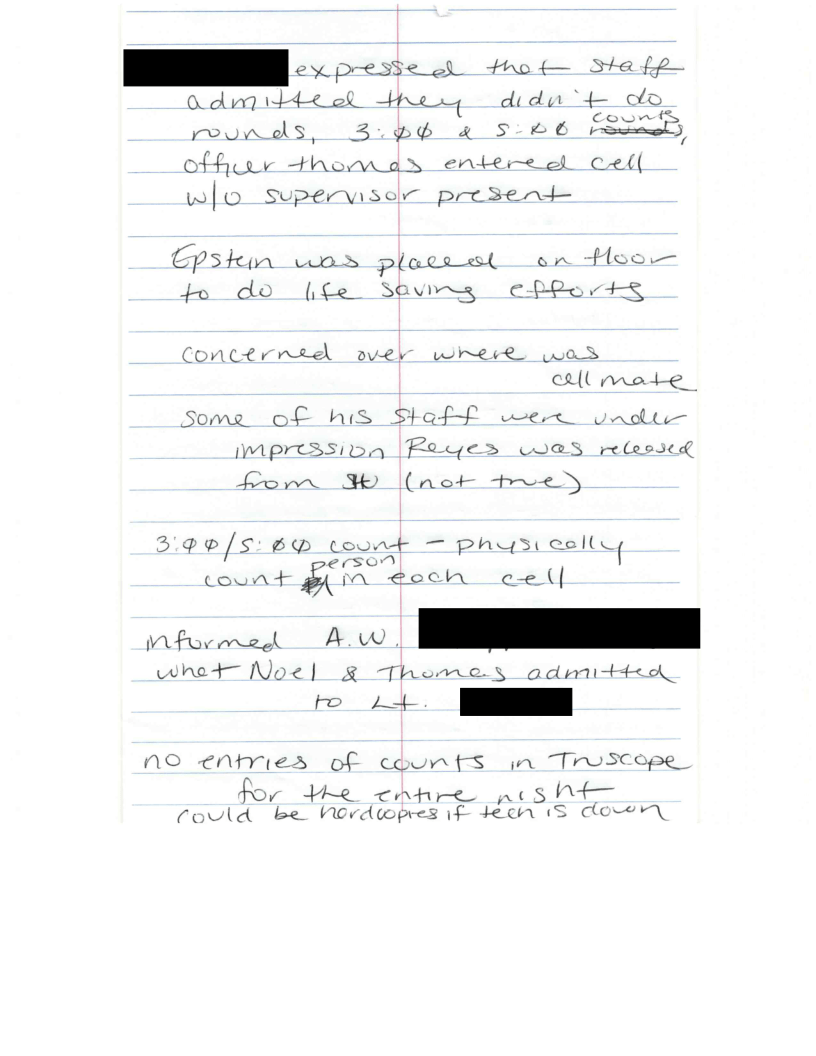 expressed that staff
admitted they didn't do
rounds, 3:00 & 5:00 counts rounds,
officer thomas entered cell
w/o supervisor present
Epstein was placed on floor
to do life saving efforts
concerned over where was
cell mate
some of his staff were under
impression Reyes was released
from (not true)
3:00/5:00 count - physically
count person in each cell
informed A.W.
what Noel & Thomas admitted
to Lt.
no entries of counts in Truscope
for the entire night
could be hardcopies if tech is down